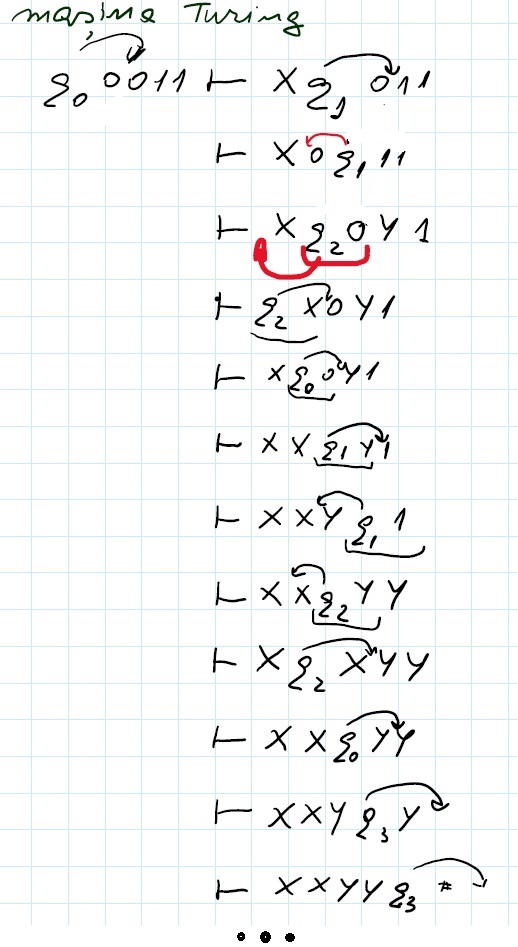 mașina Turing
q₀ 0011 ⊢ X q₁ 011
⊢ X 0 q₁ 11
⊢ X q₂ 0 Y 1
⊢ q₂ X 0 Y 1
⊢ X q₀ 0 Y 1
⊢ X X q₁ Y 1
⊢ X X Y q₁ 1
⊢ X X q₂ Y Y
⊢ X q₂ X Y Y
⊢ X X q₀ Y Y
⊢ X X Y q₃ Y
⊢ X X Y Y q₃ *